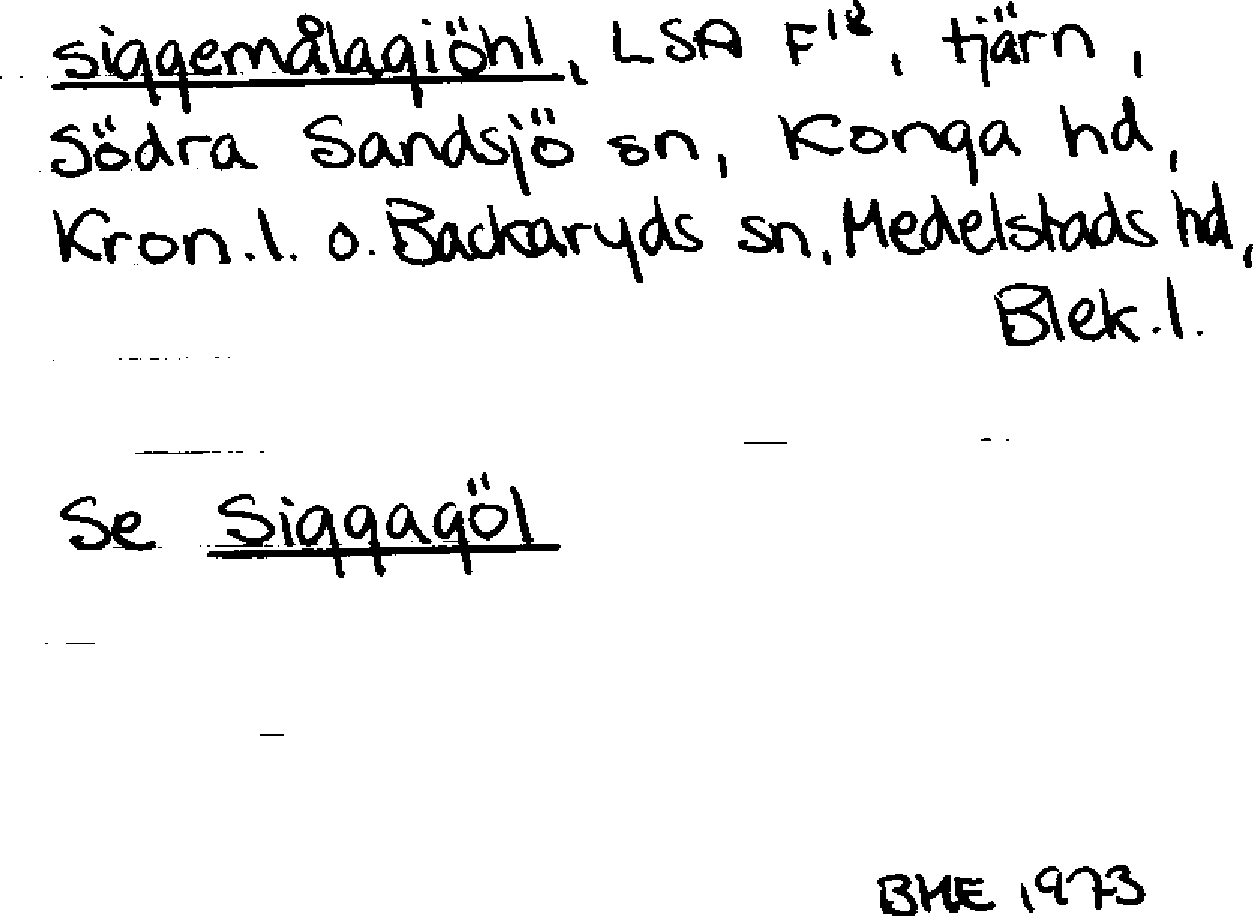 siggemålagiöhl, LSA F¹², tjärn,
Södra Sandsjö sn, Konga hd,
Kron.l. o. Backaryds sn, Medelstads hd,
Blek.l.
Se Siggagöl
BHE 1973